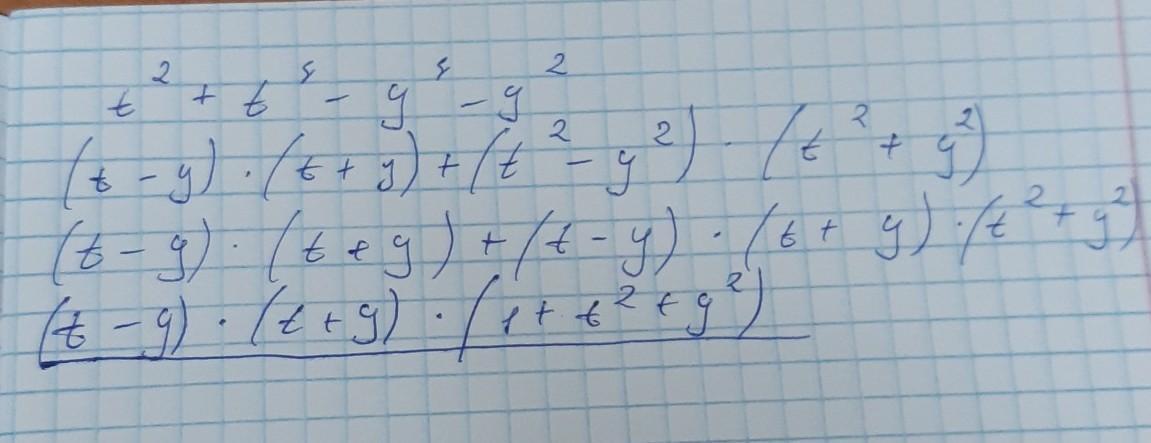 t² + t⁴ - y⁴ - y²
(t - y) · (t + y) + (t² - y²) · (t² + y²)
(t - y) · (t + y) + (t - y) · (t + y) · (t² + y²)
(t - y) · (t + y) · (1 + t² + y²)